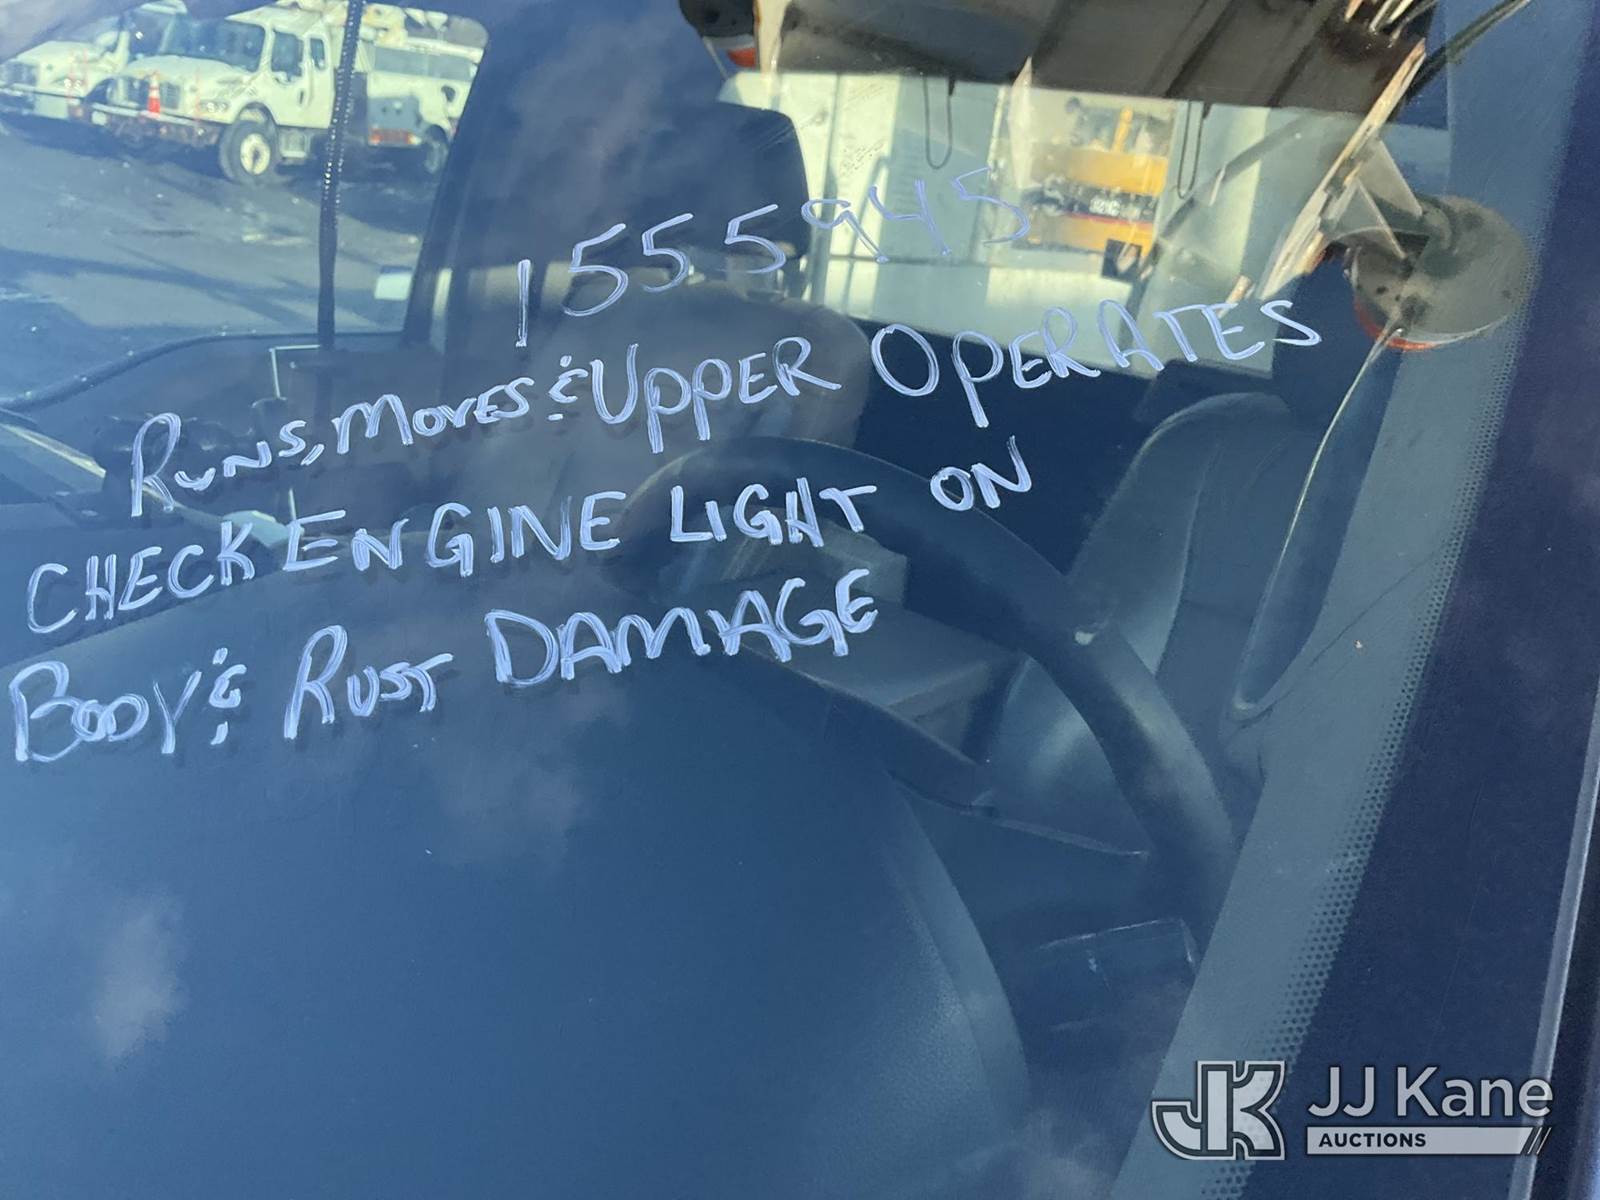 1555945
RUNS, MOVES & UPPER OPERATES
CHECK ENGINE LIGHT ON
BODY & RUST DAMAGE
JJ Kane
AUCTIONS